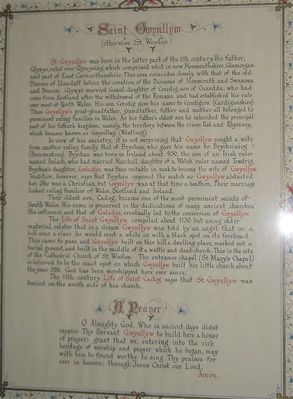 Saint Gwynllyw
(otherwise St. Woolos)
St. Gwynllyw was born in the latter part of the 5th century. His father,
Glywys, ruled over Glywysing which comprised what is now Monmouthshire, Glamorgan
and part of East Carmarthenshire. This area coincides closely with that of the old
Diocese of Llandaff before the creation of the Dioceses of Monmouth and Swansea
and Brecon. Glywys married Guaul, daughter of Ceredig, son of Cunedda, who had
come from Scotland after the withdrawal of the Roman, and had established his rule
over most of North Wales. His son Ceredig gave his name to Ceredigion (Cardiganshire).
Thus Gwynllyw's great-grandfather, grandfather, father and mother all belonged to
prominent ruling families in Wales. As his father's eldest son he inherited the principal
part of his father's kingdom, namely, the territory between the rivers Usk and Rhymney,
which became known as Gwynllwg (Wentloog).
In view of his ancestry, it is not surprising that Gwynllyw sought a wife
from another ruling family, that of Brychan, who gave his name to Brycheiniog
(Breconshire). Brychan was born in Ireland about 400, the son of an Irish ruler
named Anlach, who had married Marchell, daughter of a Welsh ruler named Tewdrig.
Brychan's daughter, Gwladys, was thus suitable in rank to become the wife of Gwynllyw.
Tradition, however, says that Brychan opposed the match so Gwynllyw abducted
her. She was a Christian, but Gwynllyw was at that time a heathen. Their marriage
linked ruling families of Wales, Scotland and Ireland.
Their eldest son, Cadog, became one of the most prominent saints of
South Wales. His name is preserved in the dedications of many ancient churches.
His influence, and that of Gwladys, eventually led to the conversion of Gwynllyw.
The Life of Saint Gwynllyw, compiled about 1130 but using older
material, relates that in a dream Gwynllyw was told by an angel that on a
hill near a river he would meet a white ox with a black spot on its forehead.
This came to pass, and Gwynllyw built on this hill a dwelling-place, marked out a
burial ground, and built in the middle of it a wattle and daub church. This is the site
of the Cathedral Church of St. Woolos. The entrance chapel (St. Mary's Chapel)
is believed to be the exact spot on which Gwynllyw built his little church about
the year 500. God has been worshipped here ever since.
The 11th century Life of Saint Cadog says that St. Gwynllyw was
buried on the south side of his church.
A Prayer
O Almighty God, Who in ancient days didst
inspire Thy Servant Gwynllyw to build here a house
of prayer; grant that we, entering into the rich
heritage of worship and prayer which he began, may
with him be found worthy to sing Thy praises for
ever in heaven; through Jesus Christ our Lord.
Amen.